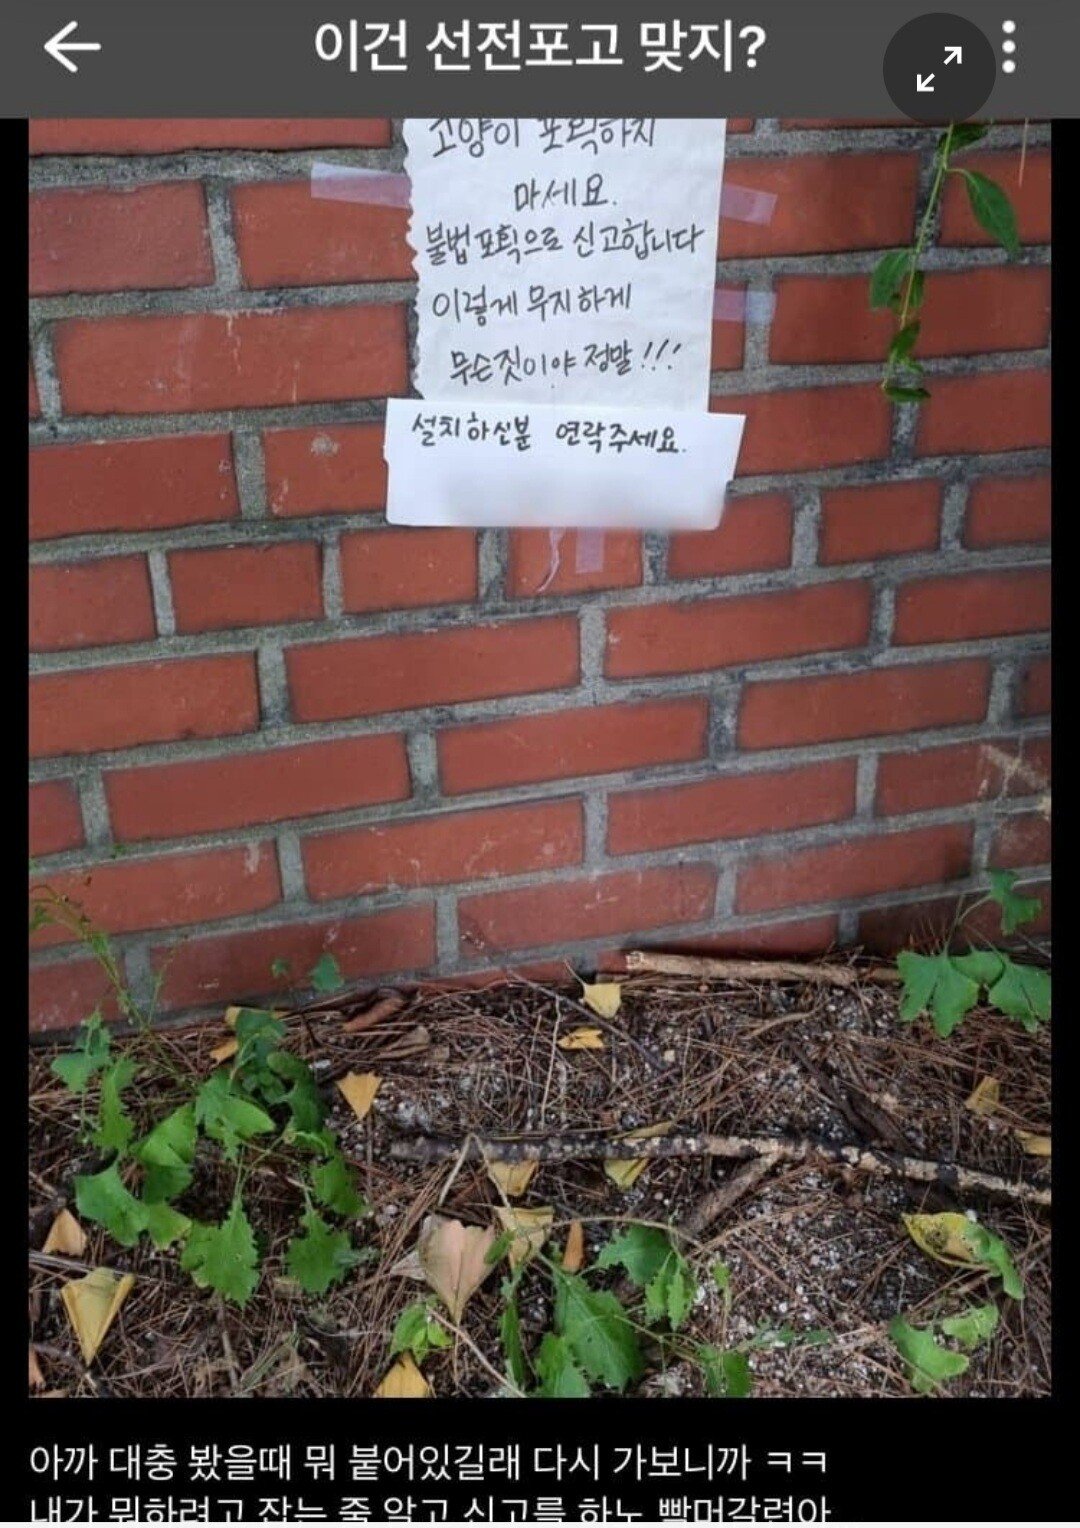 이건 선전포고 맞지?
고양이 포획하지
마세요.
불법포획으로 신고합니다
이렇게 무지하게
무슨짓이야 정말!!!
설치하신분 연락주세요.
아까 대충 봤을때 뭐 붙어있길래 다시 가보니까 ㅋㅋ
내가 뭐하려고 잡는 줄 알고 신고를 하노 빨머갈련아